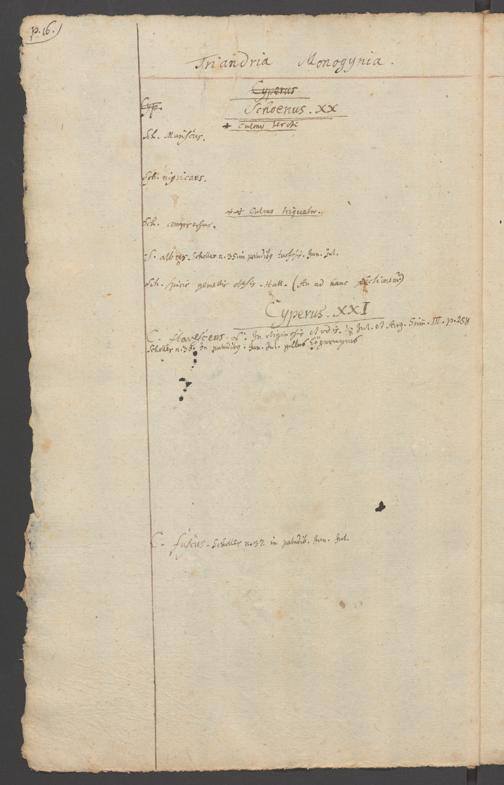 p. 16.
Triandria Monogynia.
Cyperus
Cyp. Schoenus. XX
* Culmo tereti
Sch. Mariscus.
Sch. nigricans.
** Culmo triquetro.
Sch. compressus.
S. albus. Scheller n. 35 in paludib. Jun. Jul.
Sch. spicis gemellis Hall. (An ad hanc
Cyperus. XXI
C. flavescens. In et Jul. et Aug. III. p. 258
Scheller n. in paludib. Jun. Jul.
C. fuscus. Scheller n. 37 in paludib. Jun. Jul.